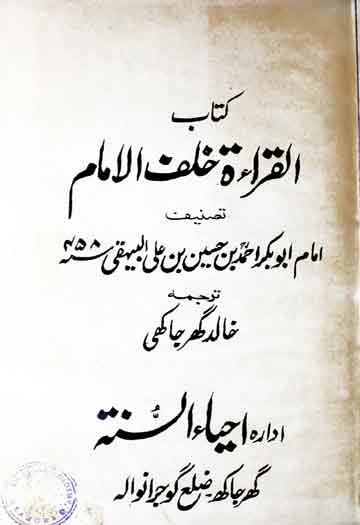 کتاب
القراءة خلف الامام
تصنیف
امام ابوبکر احمد بن حسین بن علی البیہقی ۴۵۸ھ
ترجمہ
خالد گھرجاکھی
ادارہ احیاء السنة
گھرجاکھ۔ ضلع گوجرانوالہ